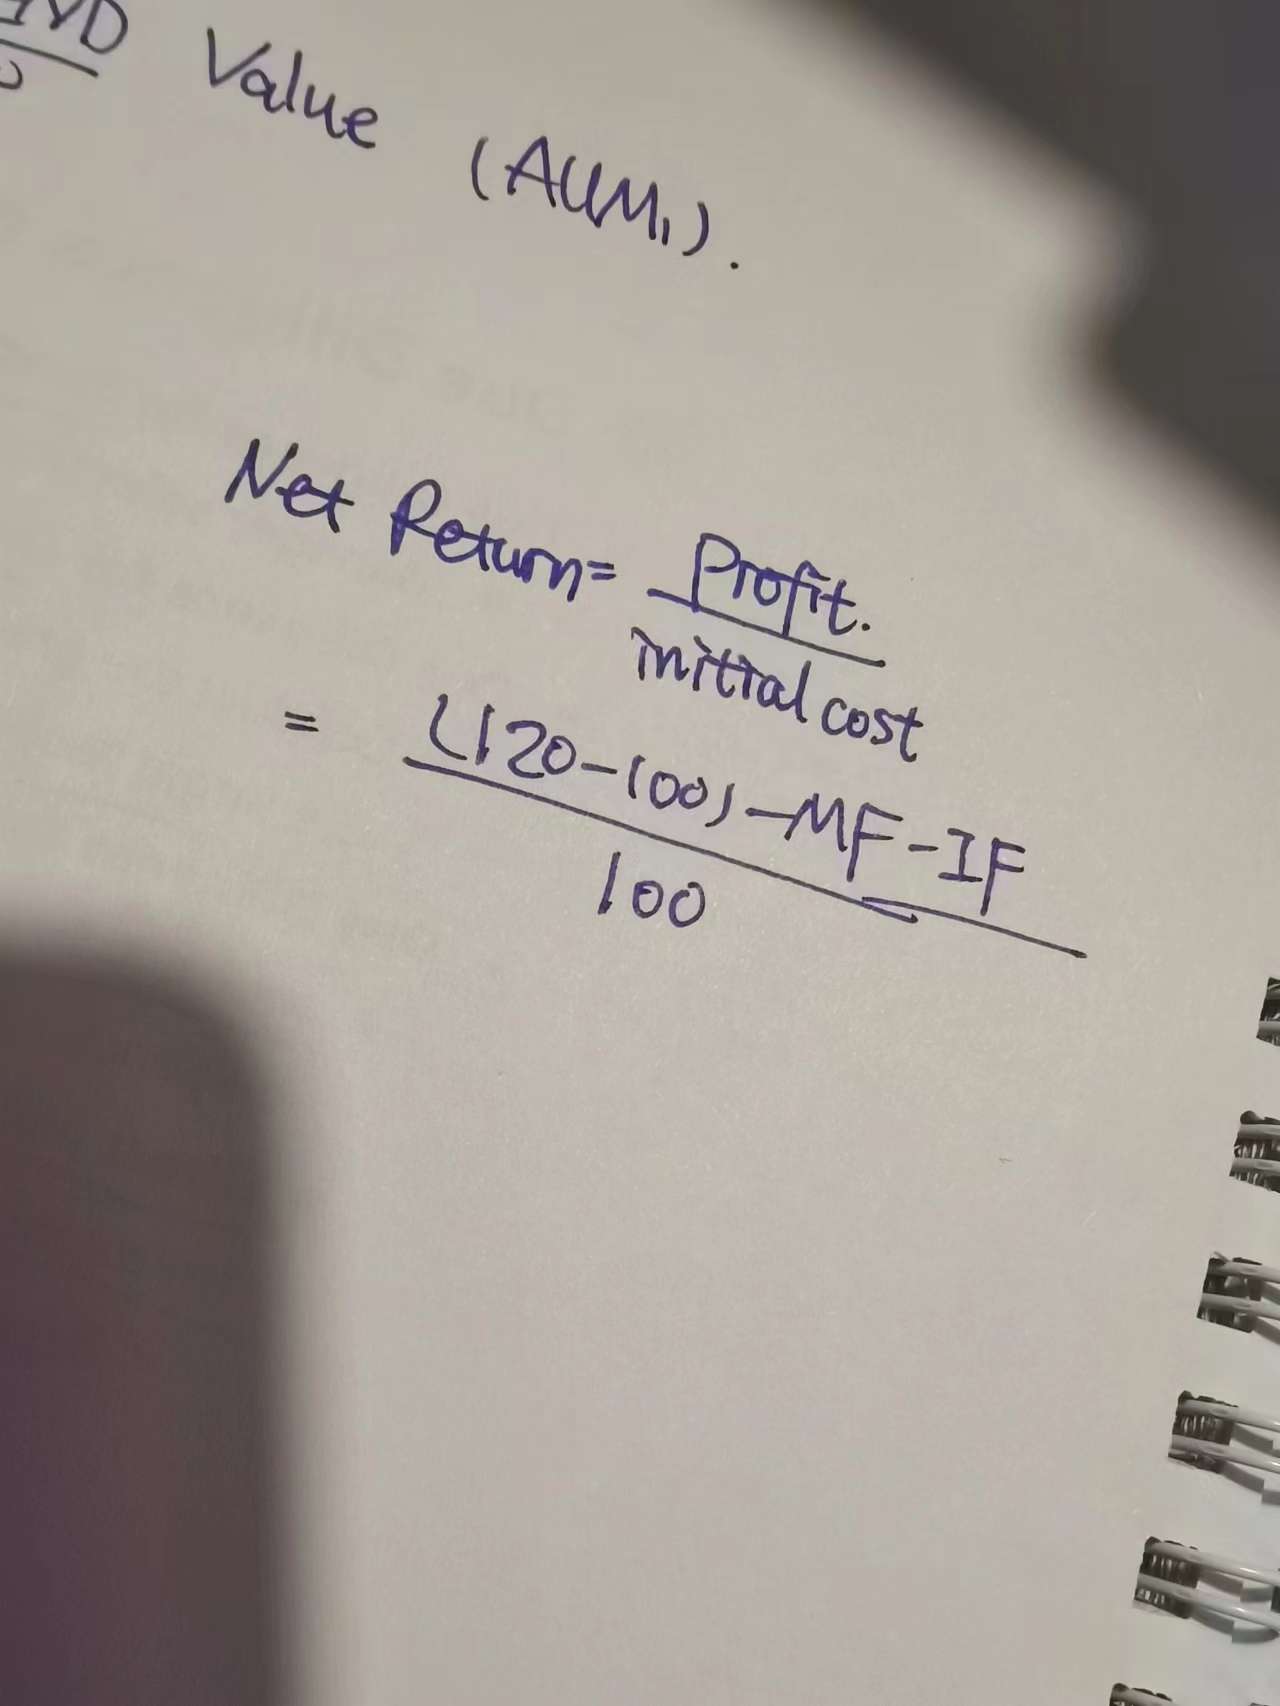 Value (AUM₁).
Net Return = Profit.
initial cost
= (120-100)-MF-IF
100